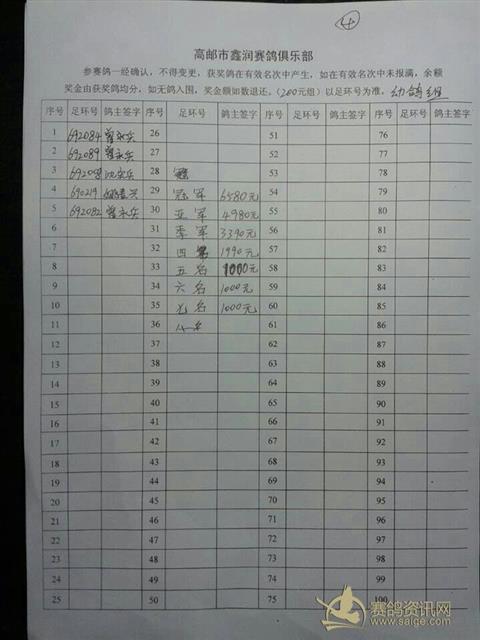 4
高邮市鑫润赛鸽俱乐部
参赛鸽一经确认，不得变更，获奖鸽在有效名次中产生，如在有效名次中未报满，余额
奖金由获奖鸽均分，如无鸽入围，奖金额如数退还。(200元组) 以足环号为准。幼鸽组
序号 足环号 鸽主签字 序号 足环号 鸽主签字 序号 足环号 鸽主签字 序号 足环号 鸽主签字
1 692084 26 51 76
2 692089 27 52 77
3 28 53 78
4 690219 29 冠军 6580元 54 79
5 692082 30 亚军 4980元 55 80
6 31 季军 3390元 56 81
7 32 四名 1990元 57 82
8 33 五名 1000元 58 83
9 34 六名 1000元 59 84
10 35 七名 1000元 60 85
11 36 八名 61 86
12 37 62 87
13 38 63 88
14 39 64 89
15 40 65 90
16 41 66 91
17 42 67 92
18 43 68 93
19 44 69 94
20 45 70 95
21 46 71 96
22 47 72 97
23 48 73 98
24 49 74 99
25 50 75 100
赛鸽资讯网
www.saige.com